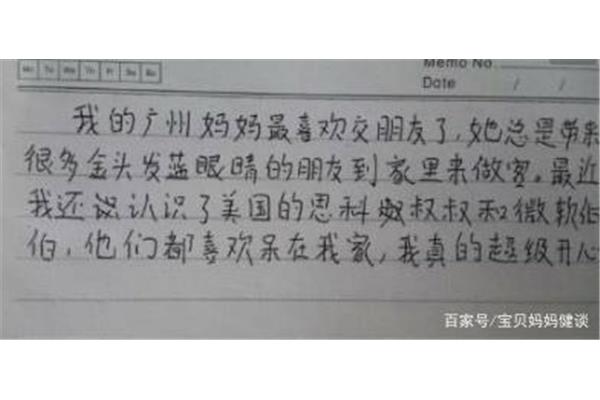 Mo Tu We Th Fr Sa Su
Memo No.
Date / /
我的广州妈妈最喜欢交朋友了,她总是带来
很多金头发蓝眼睛的朋友到家里来做客。最近
我还认识了美国的思科叔叔和微软伯
伯,他们都喜欢呆在我家,我真的超级开心
百家号/宝贝妈妈健谈